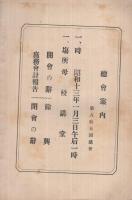 總會案内
第九回五國議會
一、時　昭和十三年一月三日午后一時
一、場所　母校講堂
開會の辭
餘興
庶務會計報告
閉會の辭